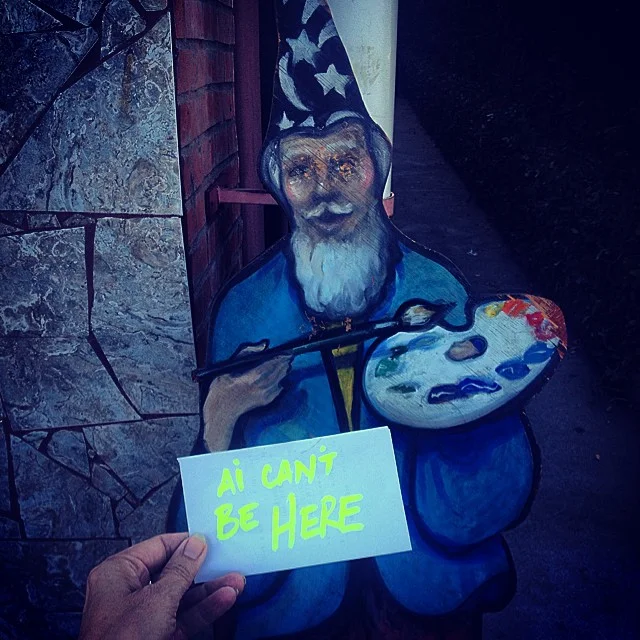 Ai CAN'T
BE HERE